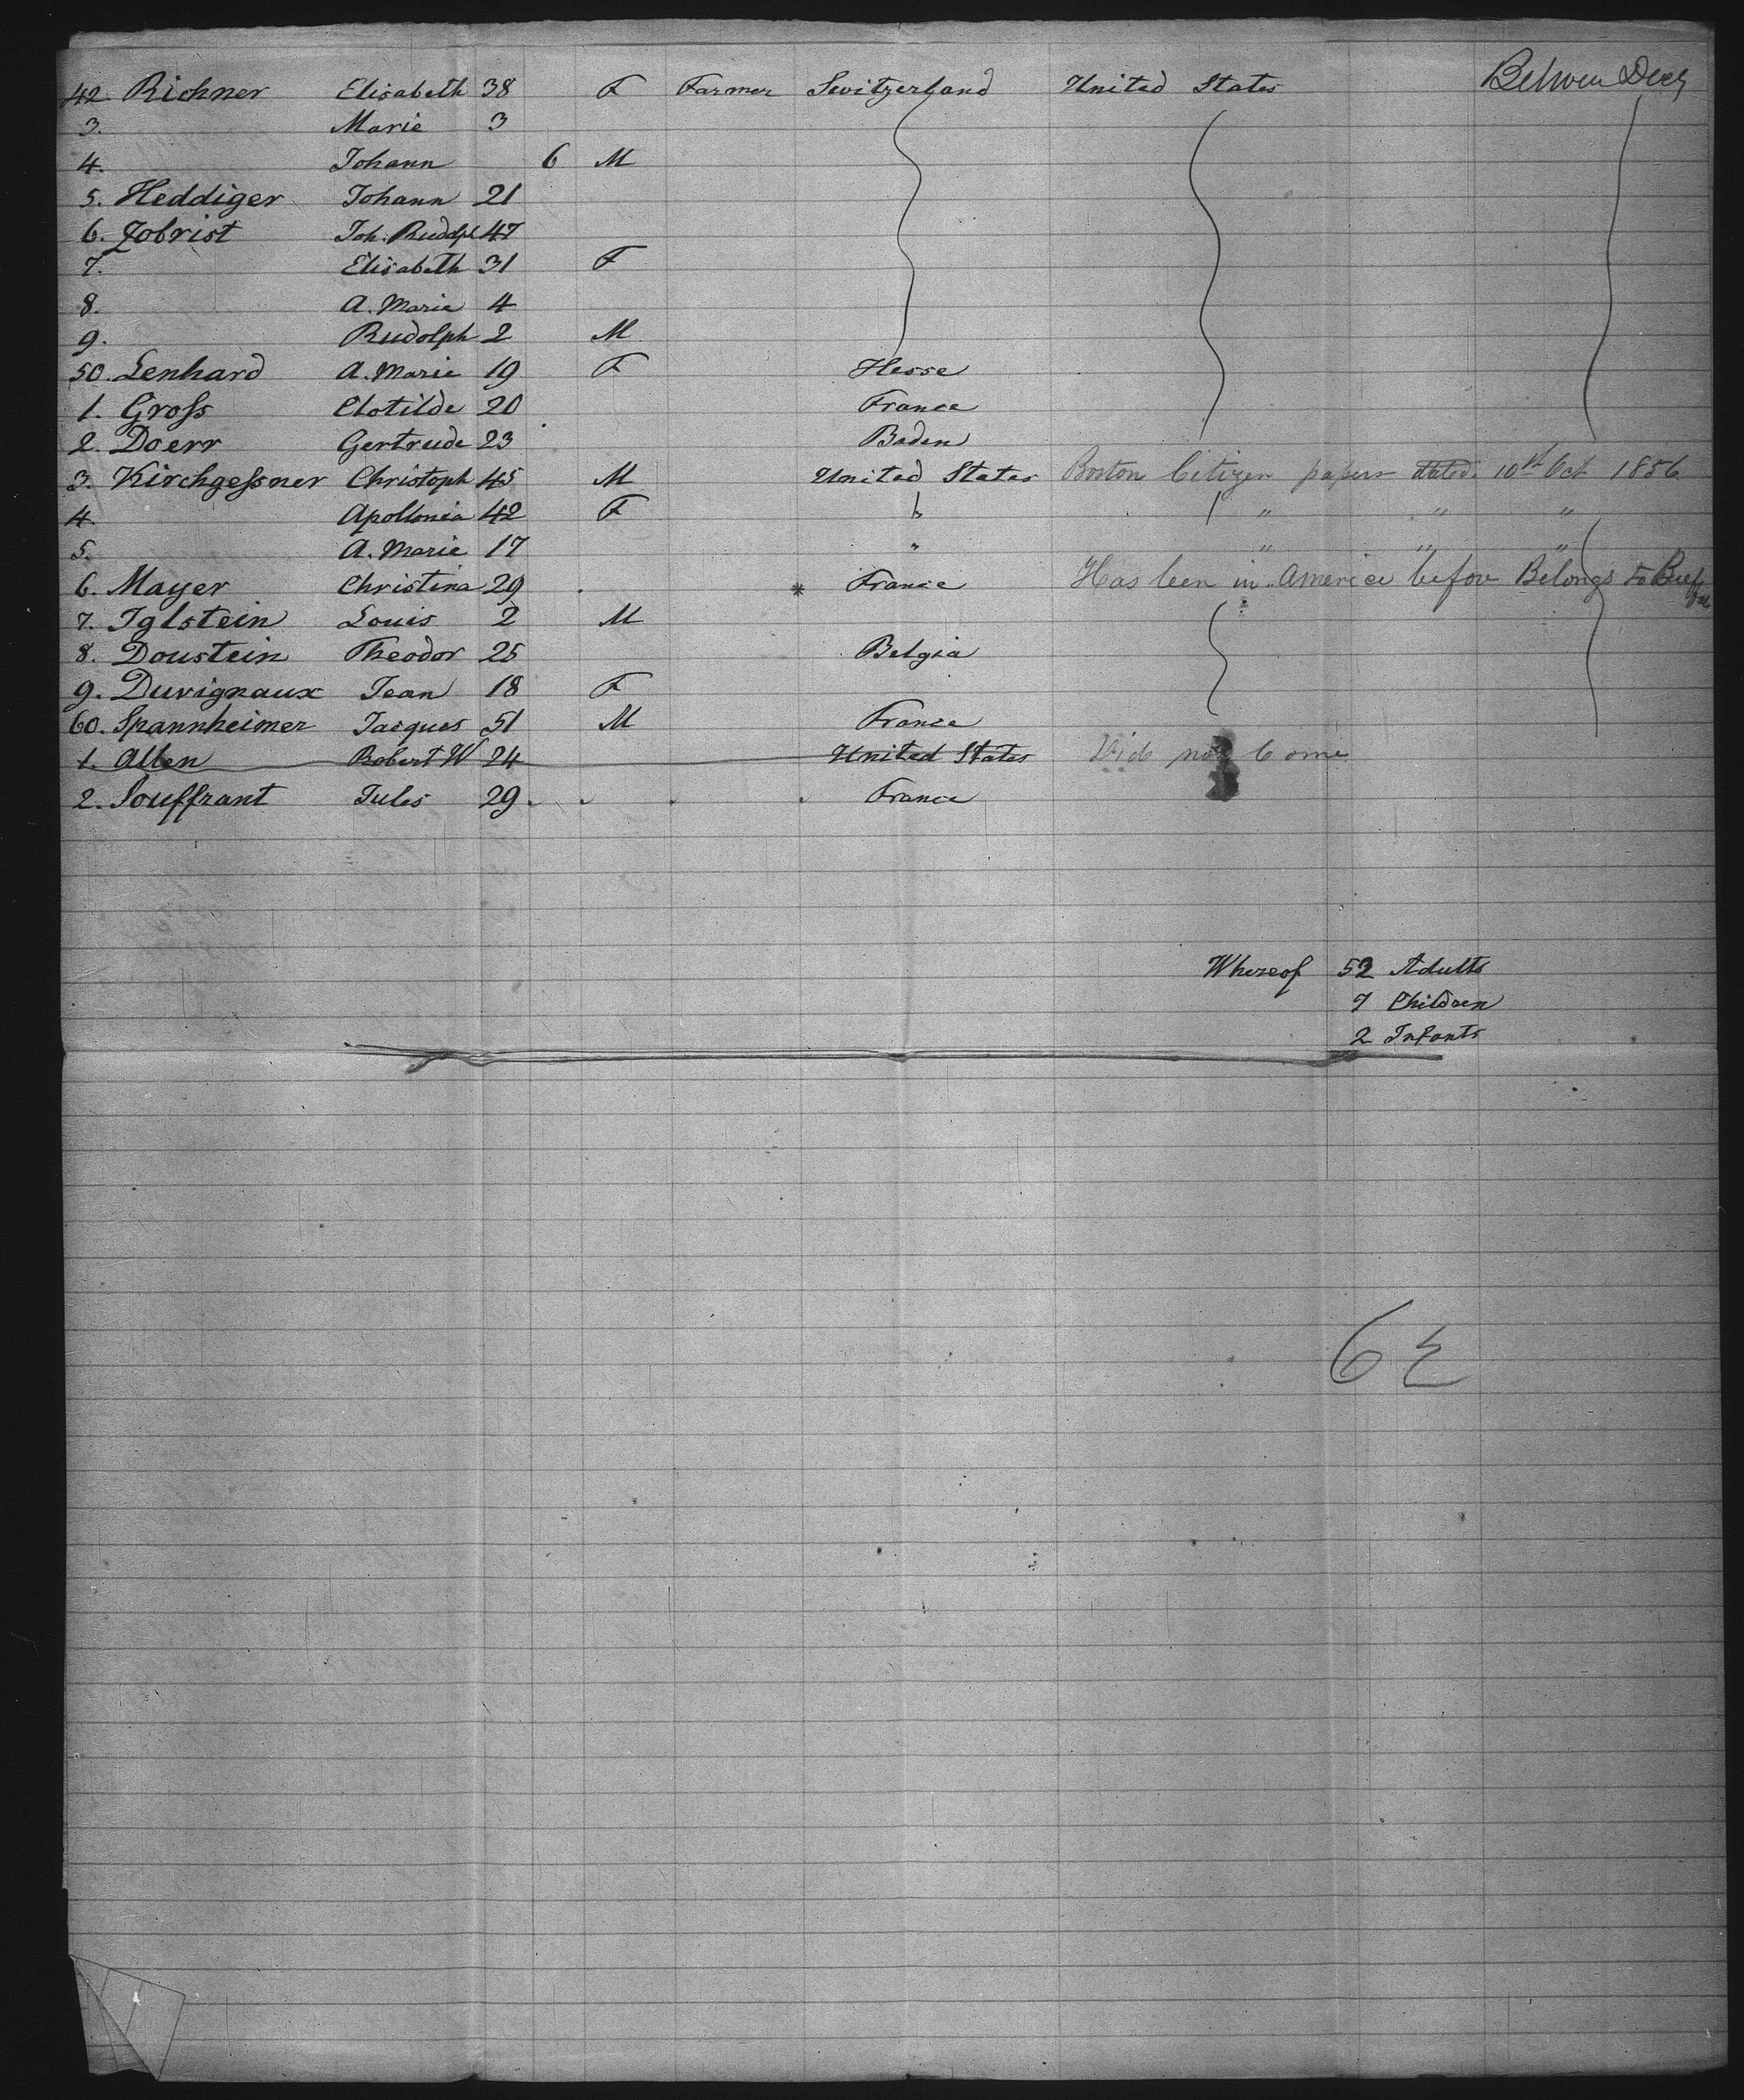 42 Richner Elisabeth 38 F Farmer Switzerland United States Between Decks
3. Marie 3
4. Johann 6 M
5. Heddiger Johann 21
6. Zobrist Joh. Rudolph 47
7. Elisabeth 31 F
8. A. Marie 4
9. Rudolph 2 M
50. Lenhard A. Marie 19 F Hesse
1. Groſs Clotilde 20 France
2. Doerr Gertrude 23 Baden
3. Kirchgeſsner Christoph 45 M United States Boston Citizen papers dated. 10th Oct 1856
4. Apollonia 42 F " " " "
5. A. Marie 17 " " " "
6. Mayer Christina 29 * France Has been in America before Belongs to
7. Iglstein Louis 2 M
8. Doustein Theodor 25 Belgia
9. Duvignaux Jean 18 F
60. Spannheimer Jacques 51 M France
1. Allen Robert W 24 United States Did not Come
2. Souffrant Jules 29 France
Whereof 52 Adults
7 Children
2 Infants
62